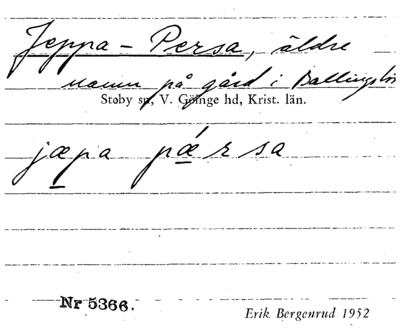 Jeppa - Persa, äldre
namn på gård i Ballingslöv
Stoby sn, V. Göinge hd, Krist. län.
jæpa pǽrsa
Nr 5366.
Erik Bergenrud 1952